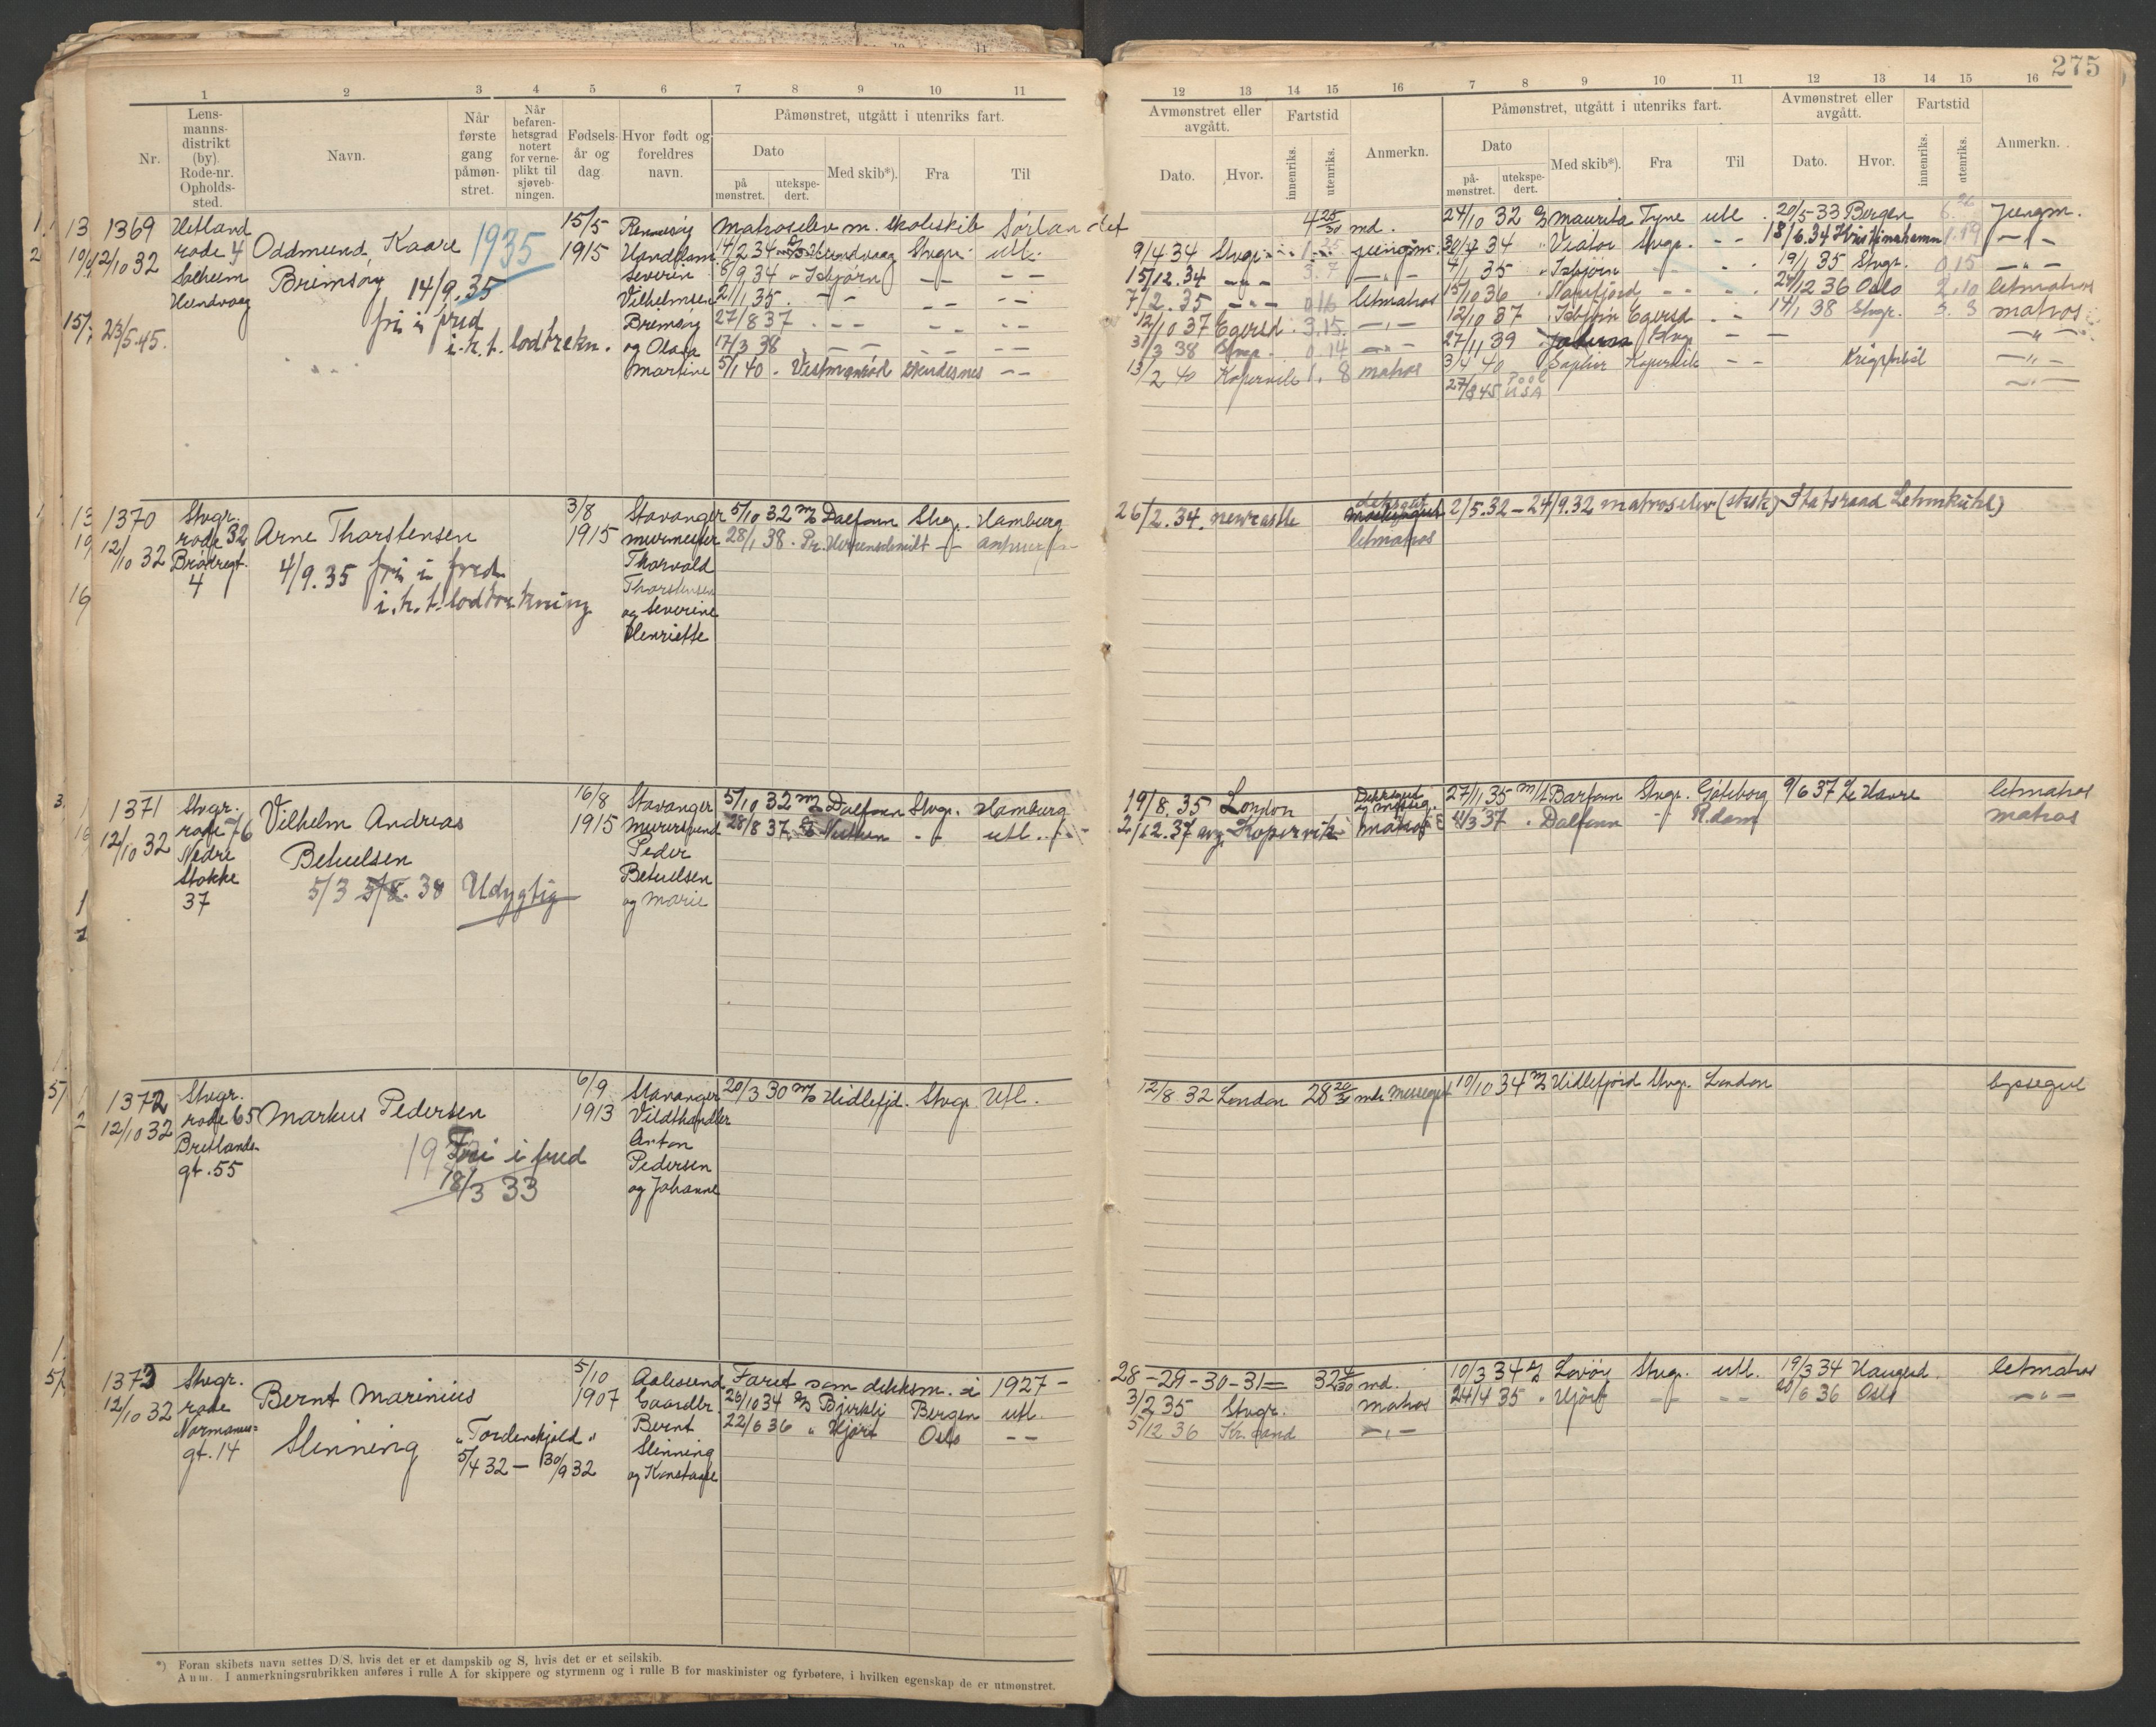 275
1 2 3 4 5 6 7 8 9 10 11
Nr.
Lens-
manns-
distrikt
(by).
Rode-nr.
Opholds-
sted.
Navn.
Når
første
gang
påmøn-
stret.
Når
befaren-
hetsgrad
notert
for verne-
plikt til
sjøveb-
ningen.
Fødsels-
år og
dag.
Hvor født og
foreldres
navn.
Påmønstret, utgått i utenriks fart.
Dato
på
mønstret.
utekspe-
dert.
Med skib*).
Fra
Til
12 13 14 15 16 7 8 9 10 11 12 13 14 15 16
Avmønstret eller
avgått.
Dato.
Hvor.
Fartstid
innenriks.
utenriks.
Anmerkn.
Påmønstret, utgått i utenriks fart.
Dato
på-
mønstret.
utekspe-
dert.
Med skib*).
Fra
Til
Avmønstret eller
avgått.
Dato.
Hvor.
Fartstid
innenriks.
utenriks.
Anmerkn.
1369
12/10 32
23/5.45.
Hetland
rode 4
Solheim
Hundvaag
Oddmund, Kaare
Brimsøy
1935
14/9.35
fri i fred
i.h.t. lodtrekn.
15/5
1915
Rennesøy
Handelsm
Severin
Vilhelmsen
Brimsøy
og Olava
Martine
Matroselev m. skoleskib Sørlandet
4 25/30 md.
14/2 34 Hundvaag Stvgr. utl.
9/4 34 Stvgr. jungm.
8/9 34 - Isbjørn - -
15/12.34 - - -
2/1 35. - - - -
7/2.35 - - - 0 16 letmatros
27/8 37 - - - -
12/10 37 Egersd. 3.15. - " -
17/3 38 - - - -
31/3 38 Stvgr. 0.14 - " -
5/1 40 - Vestmanrød Lyndesnes - -
13/2 40 Kopervik 1. 8 matros
24/10 32 Maurita Tyne utl. 20/5 33 Bergen 6.26 Jungm.
30/4 34 " Viator Stvgr. - - 18/6.34 Kristinehamn 1.19 - " -
4/1 35 " Isbjørn - - 19/1 35 Stvgr. 0 15 - " -
15/10 36 " Norefjord - - 24/12 36 Oslo 2.10 letmatros
12/10 37 " Isbjørn Egersd - - 14/1 38 Stvgr. 3. 3 matros
27/11 39 Jaderen Stvgr - - - " -
3/4 40 Saphir Kopervik - - Krigsforlist - " -
27/8 45 Pool USA - " -
1370
12/10 32
Stvgr.
rode 32
Brødregt.
4
Arne Thorstensen
4/9.35 fri i fred
i.h.t. lodtrekning
3/8
1915
Stavanger
murmester
Thorvald
Thorstensen
og Severine
Henriette
5/10 32 M/S Dalfonn Stvgr. Hamburg
28/1 38 - Pr. Herrenschmidt - Antwerp -
26/2.34. Newcastle
dæksgut
letmatros
2/5.32 - 24/9.32 matroselev (stsk) Statsraad Lehmkuhl)
1371
12/10 32
Stvgr.
rode 76
Nedre
Stokke
37
Vilhelm Andreas
Betuelsen
5/3 38 Udygtig
16/8
1915
Stavanger
Murersvend
Peder
Betuelsen
og Marie
5/10 32 M/S Dalfonn Stvgr. Hamburg
28/8 37 - - utl.
19/8.35 London Dekksgut
2/12.37 avg. Kopervik matros
27/1 35 M/T Barfonn Stvgr. Göteborg 9/6 37 Le Havre letmatros
4/3 37 " Dalfonn - R.dam matros
1372
12/10 32
Stvgr.
rode 65
Bretlands-
gt. 55
Markus Pedersen
Fri i fred
18/3 33
6/9
1913
Stavanger
Vildthandler
Anton
Pedersen
og Johanne
20/3 30 M/S Hidlefjd. Stvgr. Utl.
12/8 32 London 28 20/30 mdr Messegut
10/10 34 M/S Hidlefjord Stvgr. London byssegut
1373
12/10 32
Stvgr.
rode
Normanns-
gt. 14
Bernt Marinius
Slinning
"Tordenskjold"
5/4 32 - 30/9 32
5/10
1907
Aalesund
Gaardbr
Bernt
Slinning
og Knetaape
Faret som dekksm. i 1927 -
28-29-30-31 = 32 4/30 md.
26/10 34 D/S Bjerkli Bergen utl.
3/2 35 Stvgr. matros
22/6 36 " Hjört Oslo - -
5/12 36 Kr.sand - " -
10/3 34 D/S Lovöy Stvgr. utl. 19/3 34 Haugesd. letmatros
24/4 35 " Hjört - - - 20/6 36 Oslo - " -
*) Foran skibets navn settes D/S, hvis det er et dampskib og S, hvis det er et seilskib.
Anm. I anmerkningsrubrikken anføres i rulle A for skippere og styrmenn og i rulle B for maskinister og fyrbøtere, i hvilken egenskap de er utmønstret.